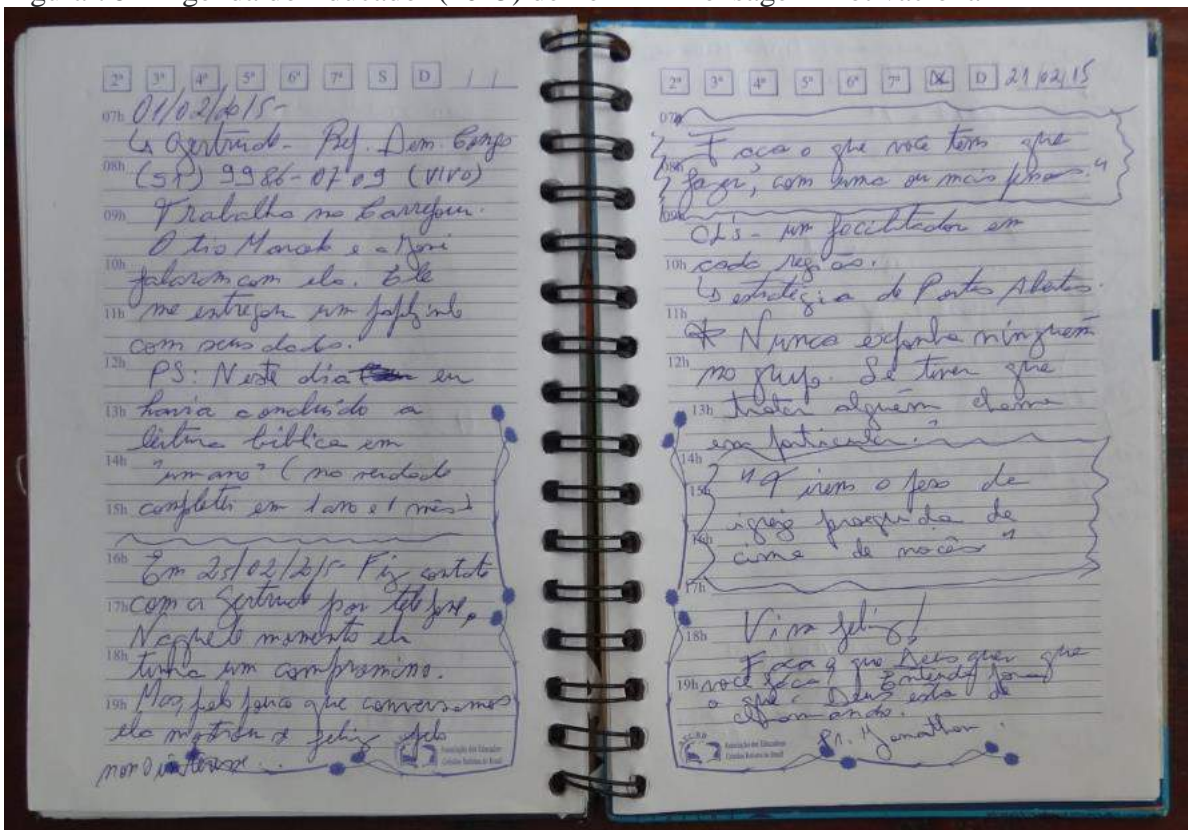 2ª 3ª 4ª 5ª 6ª 7ª S D / /
07h 01/02/2015-
↳ Gertrude - Rep. Dem. Congo
08h (51) 9986-0709 (VIVO)
09h Trabalha no Carrefour.
O tio e a
10h falaram com ela. Ele
11h me entregou um
com seus dados.
12h PS: Neste dia eu
13h havia concluído a
leitura bíblica em
14h "um ano" (na verdade
15h completei em 1 ano e 1 mês)
16h Em 25/02/2015 Fiz contato
17h com a Gertrude por telefone,
Naquele momento ela
18h tinha um compromisso.
19h Mas, pelo pouco que conversamos
ela mostrou se feliz pelo
nosso interesse.
Associação dos Educadores
Cristãos Batistas do Brasil
2ª 3ª 4ª 5ª 6ª 7ª S D 21/02/15
07h
Faça o que você tem que
08h fazer, com uma ou mais pessoas."
09h
OLs - um facilitador em
10h cada região.
↳ estratégia de Portas Abertas.
11h
* Nunca exponha ninguém
12h no grupo. Se tiver que
13h tratar alguém chame
em particular."
14h
15h "Tirem o peso de
igreja perseguida de
16h cima de vocês"
17h
18h Viva feliz!
Faça o que Deus quer que
19h você faça! Entenda para
o que Deus está te
chamando.
Pr. Jonathan.
Associação dos Educadores
Cristãos Batistas do Brasil